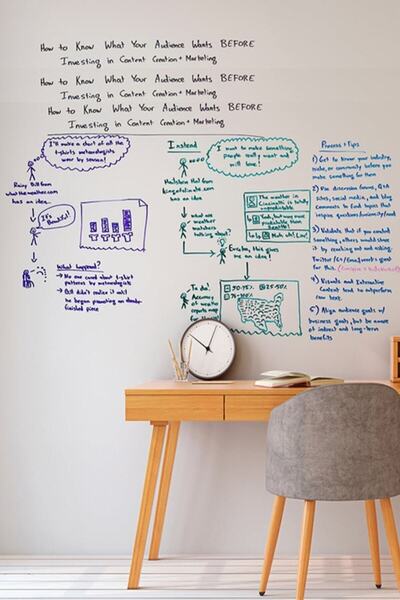 How to Know What Your Audience Wants BEFORE
Investing in Content Creation + Marketing
How to Know What Your Audience Wants BEFORE
Investing in Content Creation + Marketing
How to Know What Your Audience Wants BEFORE
Investing in Content Creation + Marketing
I'll make a chart of all the
t-shirts meteorologists
wear by season!
Rainy Bill from
whattheweather.com
has an idea...
It's Beautiful!
What happened?
→ No one cared about t-shirt
patterns by meteorologists
→ Bill didn't realize it until
he began promoting an
finished piece
Instead
I want to make something
people really want and
will love!
Hailstorm Hal from
has an idea
what are
weather
talking about?
The weather in
is totally
unpredictable
Eureka, this gives
me an idea!
To do:
Accuracy
reports map
Process + Tips
1) Get to know your industry,
niche, or community before you
make something for them
2) Use discussion forums, Q+A
sites, social media, and blog
comments to find topics that
inspire questions/curiosity/need
3) Validate that if you created
something, others would share
it by reaching out and asking.
Twitter/G+/Email works great
for this.
4) Visuals and Interactive
content tend to outperform
raw text.
5) Align audience goals w/
business goals, but be aware
of indirect and long-term
benefits